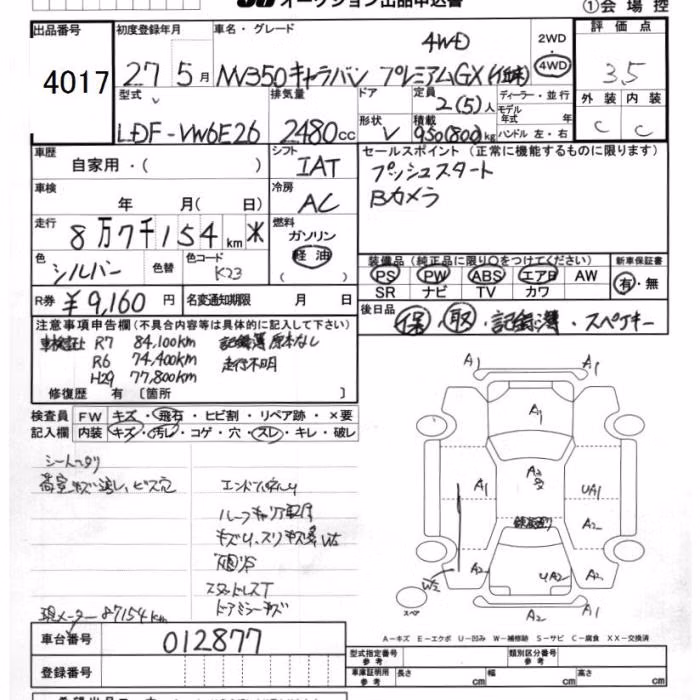 オークション出品申込書
①会場控
出品番号
4017
初度登録年月
27年5月
車名・グレード
4WD
NV350キャラバン プレミアムGX
2WD
・
4WD
評価点
3.5
外装 内装
C C
型式
LDF-VW6E26
排気量
2480cc
ドア
形状
V
定員
2(5)人
積載
950(800)kg
ディーラー・並行
モデル
年式 年
ハンドル 左・右
車歴
自家用・( )
シフト
IAT
セールスポイント(正常に機能するものに限ります)
プッシュスタート
Bカメラ
車検
年 月( 日)
冷房
AC
走行
8万7千154km
燃料
ガソリン
軽油
( )
色
シルバー
色替
色コード
K23
装備品(純正品に限り○をつけてください)
PS PW ABS エアB AW
SR ナビ TV カワ
新車保証書
有・無
R券 ¥9,160円
名変通知期限 月 日
後日品
保・取・記録簿・スペアキー
注意事項申告欄(不具合内容等は具体的に記入して下さい)
車検証 R7 84,100km 記録簿原本なし
R6 74,400km 走行不明
H29 77,800km
修復歴 有 〔箇所 〕
検査員
記入欄
FW キズ・飛石・ヒビ割・リペア跡・×要
内装 キズ・汚レ・コゲ・穴・スレ・キレ・破レ
シートヘタリ
荷室キズ 汚レ、ビス穴
ルーフキャリア
スタッドレスT
現メーター87154km
A1 A1
A1
A2
A1 UA1
A2
A2 UA2 A2
W2
スペア
A2 A1
A-キズ E-エクボ U-凹み W-補修跡 S-サビ C-腐食 XX-交換済
車台番号
012877
登録番号
型式指定番号
参考
類別区分番号
参考
車庫証明用
参考
長さ cm 幅 cm 高さ cm